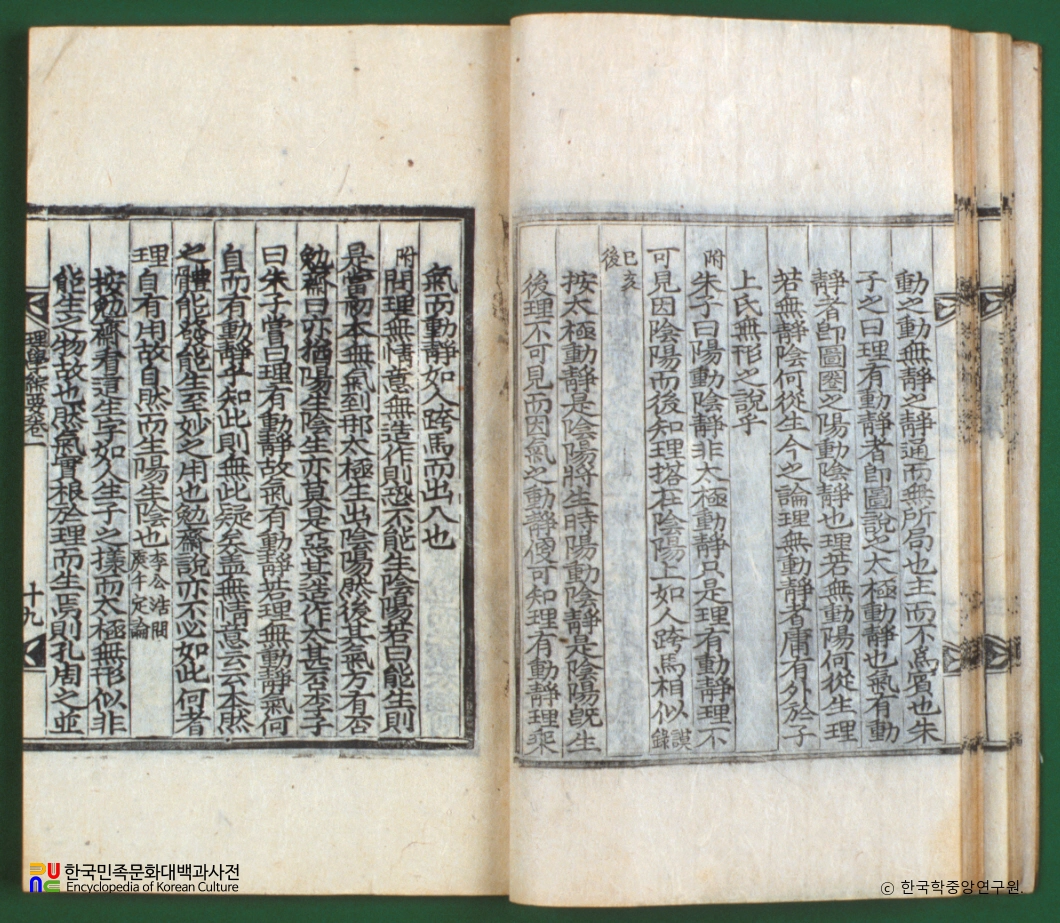 動之動無靜之靜通而無所局也主而不爲賓也朱
子之曰理有動靜者卽圖說之太極動靜也氣有動
靜者卽圖圈之陽動陰靜也理若無動陽何從生理
若無靜陰何從生今之論理無動靜者庸有外於子
上氏無形之說乎
附朱子曰陽動陰靜非太極動靜只是理有動靜理不
可見因陰陽而後知理搭在陰陽上如人跨馬相似謨錄
己亥後
按太極動靜是陰陽將生時陽動陰靜是陰陽旣生
後理不可見而因氣之動靜便可知理有動靜理乘
氣而動靜如人跨馬而出入也
附問理無情意無造作則恐不能生陰陽若曰能生則
是當初本無氣到那太極生出陰陽然後其氣方有否
勉齋曰亦猶陽生陰生亦莫是惡其造作太甚否李子
曰朱子嘗曰理有動靜故氣有動靜若理無動靜氣何
自而有動靜乎知此則無此疑矣蓋無情意云云本然
之體能發能生至妙之用也勉齋說亦不必如此何者
理自有用故自然而生陽生陰也李公浩問庚午定論
按勉齋看這生字如人生子之㨾而太極無形似非
能生之物故也然氣實根於理而生焉則孔周之並
理學綜要卷一
十九
한국민족문화대백과사전
Encyclopedia of Korean Culture
ⓒ 한국학중앙연구원.